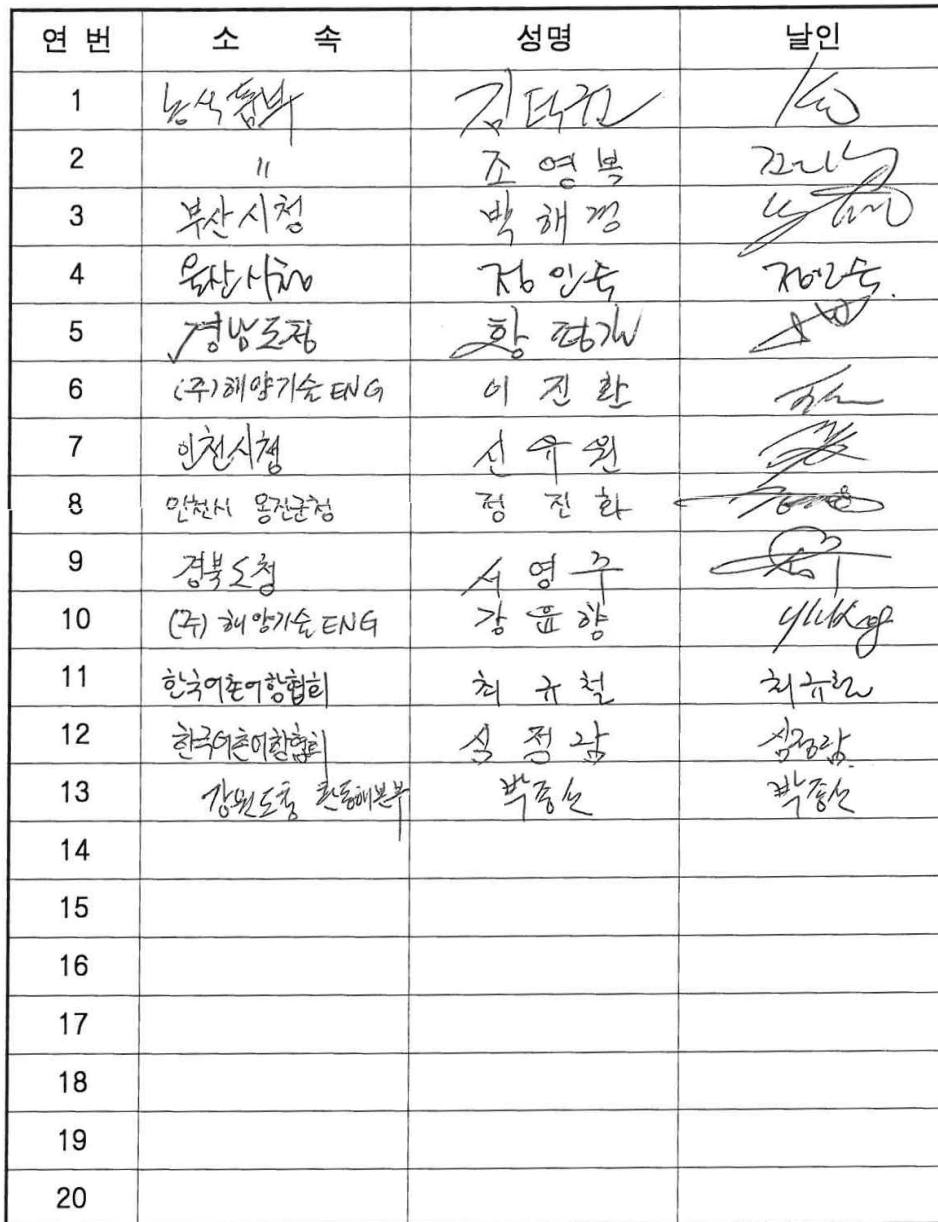 연 번 소 속 성명 날인
1 농식품부 김덕권
2 〃 조영복
3 부산시청 박해경
4 울산시청 정인숙 정인숙
5 경남도청 황평길
6 (주)해양기술ENG 이진환
7 인천시청 신유원
8 인천시 옹진군청 정진화
9 경북도청 서영주
10 (주)해양기술ENG 강윤향
11 한국어촌어항협회 최규철 최규철
12 한국어촌어항협회 심정람 심정람
13 강원도청 환동해본부 박종선 박종선
14
15
16
17
18
19
20